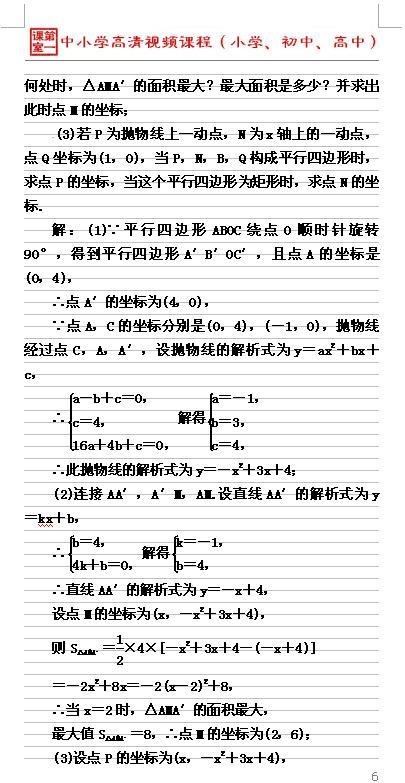 课第室一 中小学高清视频课程（小学、初中、高中）
何处时，△AMA′的面积最大？最大面积是多少？并求出
此时点M的坐标；
(3)若P为抛物线上一动点，N为x轴上的一动点，
点Q坐标为(1，0)，当P，N，B，Q构成平行四边形时，
求点P的坐标，当这个平行四边形为矩形时，求点N的坐
标.
解：(1)∵平行四边形ABOC绕点O顺时针旋转
90°，得到平行四边形A′B′OC′，且点A的坐标是
(0，4)，
∴点A′的坐标为(4，0)，
∵点A，C的坐标分别是(0，4)，(－1，0)，抛物线
经过点C，A，A′，设抛物线的解析式为y＝ax²＋bx＋
c，
a－b＋c＝0， a＝－1，
∴ c＝4， 解得 b＝3，
16a＋4b＋c＝0， c＝4，
∴此抛物线的解析式为y＝－x²＋3x＋4；
(2)连接AA′，A′M，AM.设直线AA′的解析式为y
＝kx＋b，
b＝4， k＝－1，
∴ 解得
4k＋b＝0， b＝4，
∴直线AA′的解析式为y＝－x＋4，
设点M的坐标为(x，－x²＋3x＋4)，
则S△AMA′＝1/2×4×[－x²＋3x＋4－(－x＋4)]
＝－2x²＋8x＝－2(x－2)²＋8，
∴当x＝2时，△AMA′的面积最大，
最大值S△AMA′＝8，∴点M的坐标为(2，6)；
(3)设点P的坐标为(x，－x²＋3x＋4)，
6